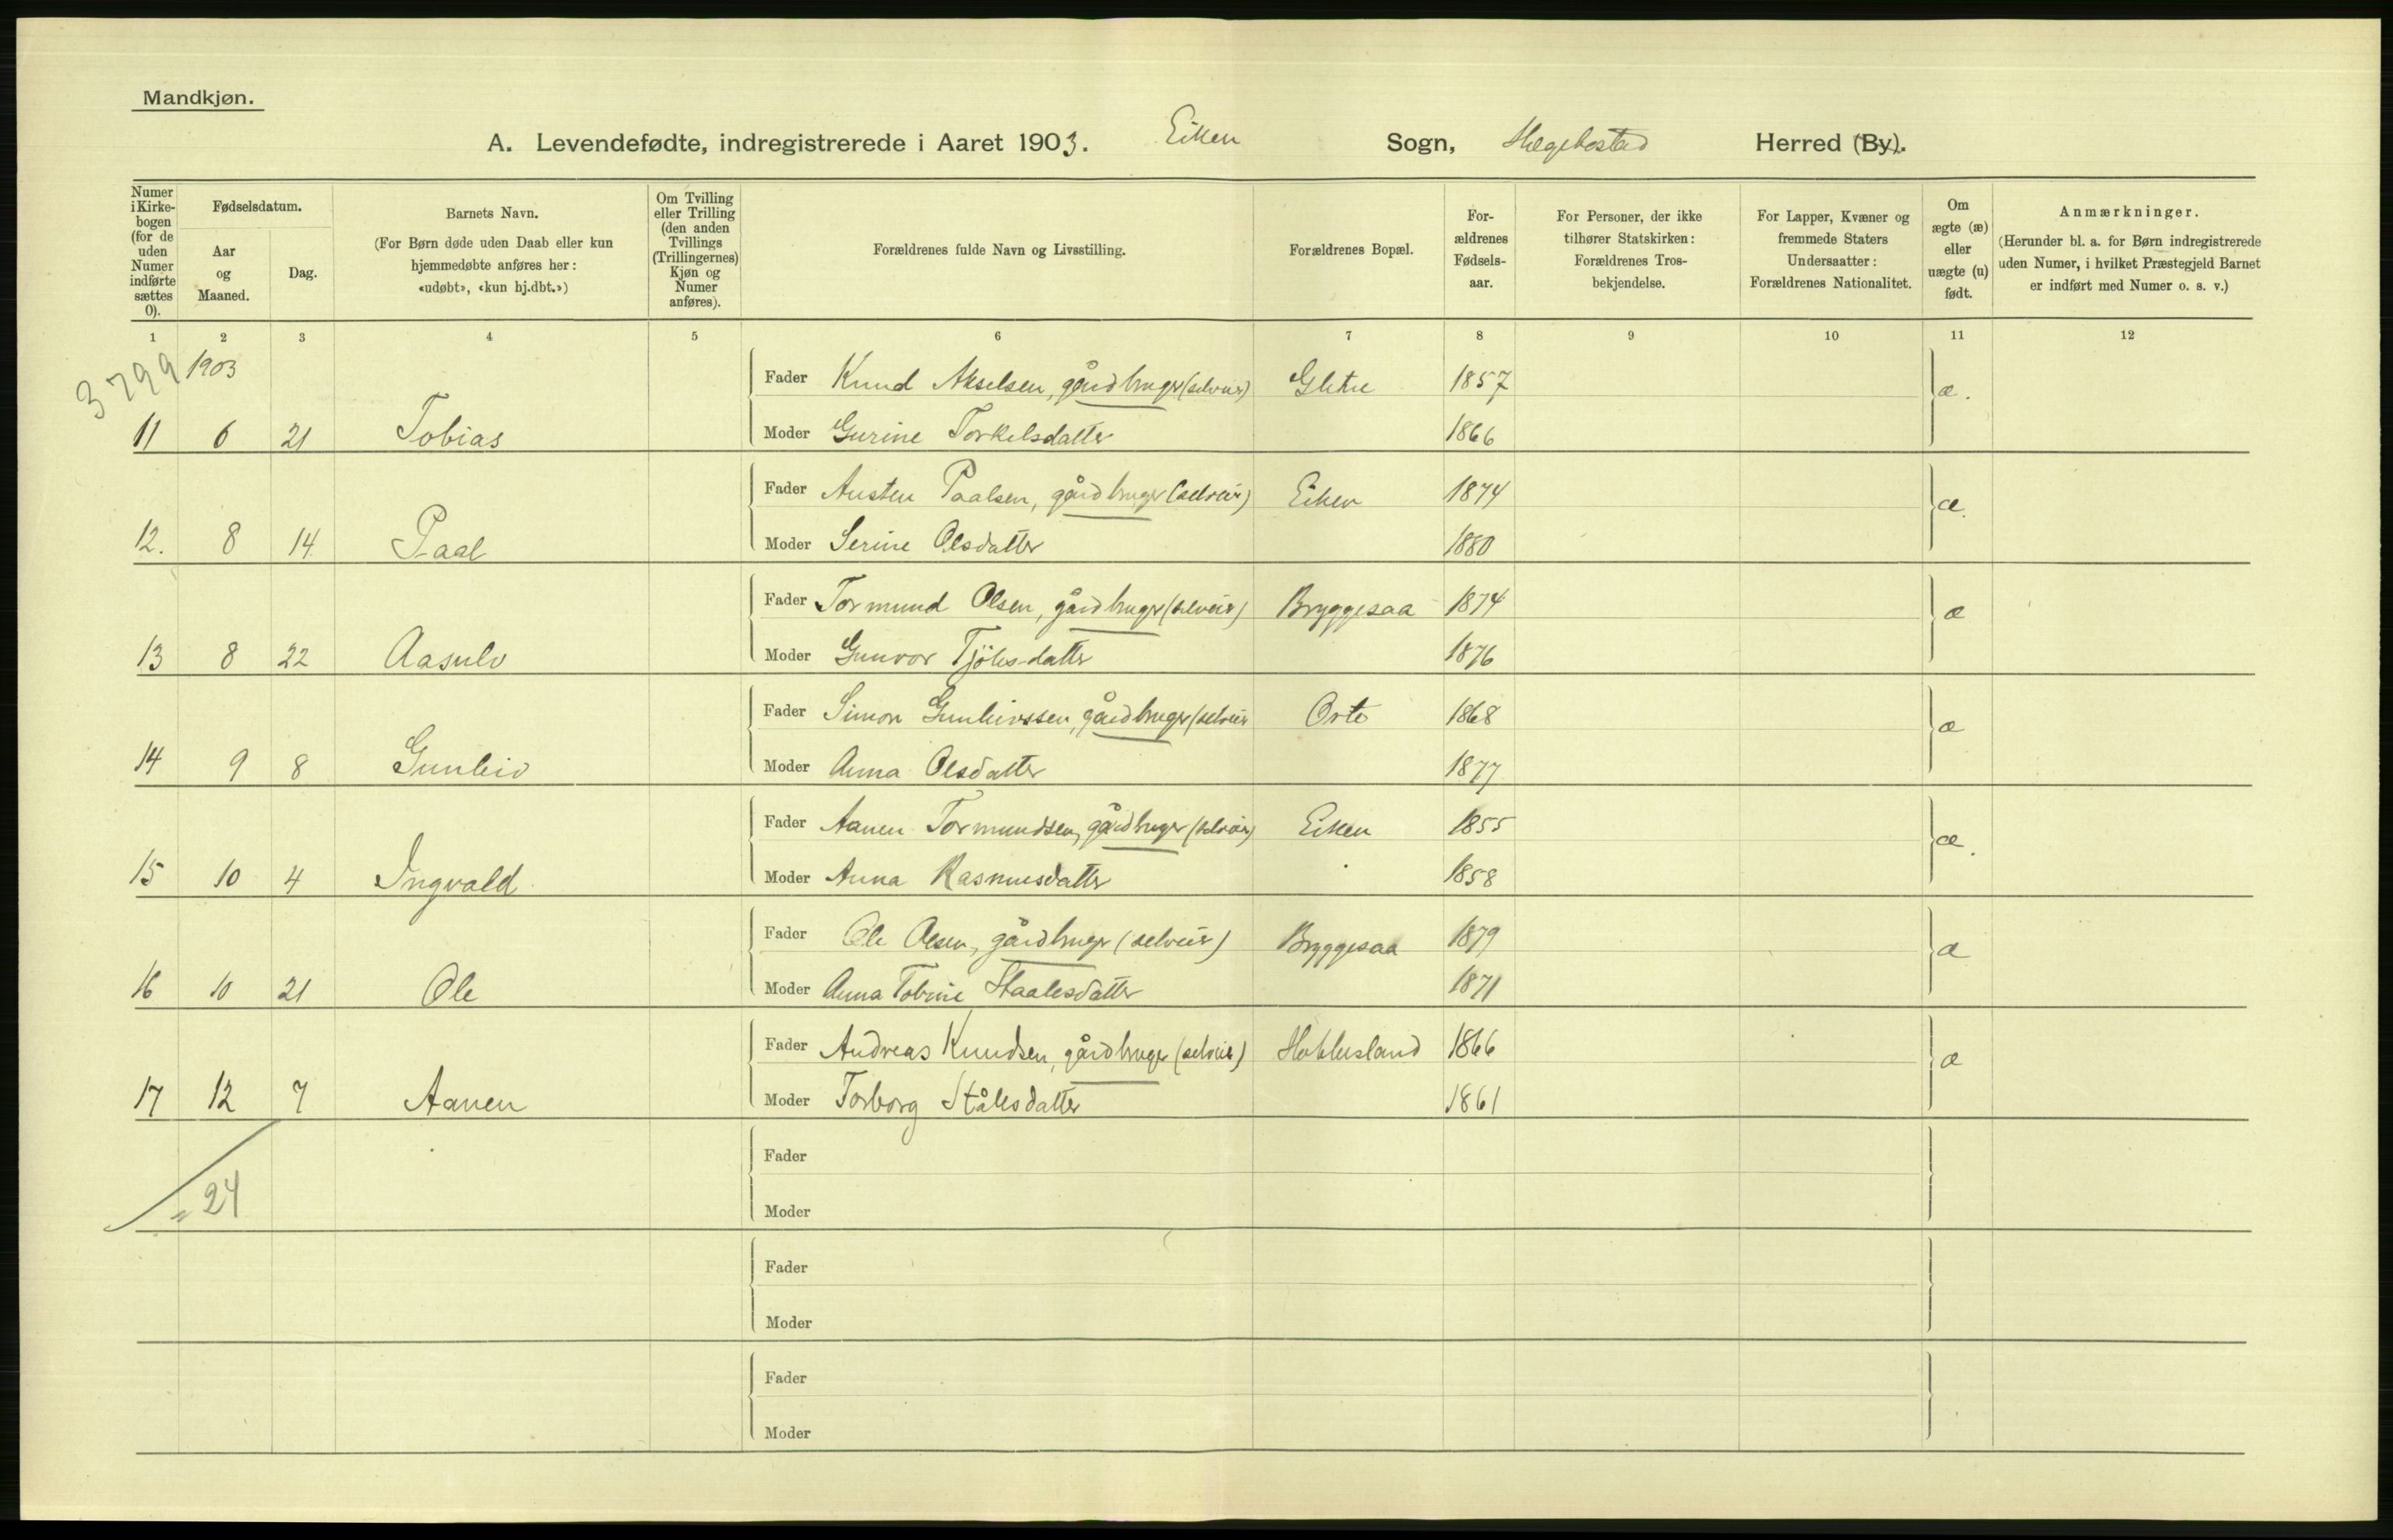 Mandkjøn.
A. Levendefødte, indregistrerede i Aaret 1903. Eiken Sogn, Hægebostad Herred (By).
Numer i Kirkebogen (for de uden Numer indførte sættes 0).
Fødselsdatum.
Aar og Maaned.
Dag.
Barnets Navn.
(For Børn døde uden Daab eller kun hjemmedøbte anføres her: «udøbt», «kun hj.dbt.»)
Om Tvilling eller Trilling (den anden Tvillings (Trillingernes) Kjøn og Numer anføres).
Forældrenes fulde Navn og Livsstilling.
Forældrenes Bopæl.
Forældrenes Fødselsaar.
For Personer, der ikke tilhører Statskirken: Forældrenes Trosbekjendelse.
For Lapper, Kvæner og fremmede Staters Undersaatter: Forældrenes Nationalitet.
Om ægte (æ) eller uægte (u) født.
Anmærkninger.
(Herunder bl. a. for Børn indregistrerede uden Numer, i hvilket Præstegjeld Barnet er indført med Numer o. s. v.)
1 2 3 4 5 6 7 8 9 10 11 12
3799 1903
Fader Knud Akselsen, gårdbruger (selveier) 1857 æ.
11 6 21 Tobias Moder Gurine Torkelsdatter 1866
Fader Austen Paalsen, gårdbruger (selveier) Eiken 1874 æ.
12. 8 14 Paal Moder Serine Olsdatter 1880
Fader Tormund Olsen, gårdbruger (selveier) Bryggesaa 1874 æ
13 8 22 Aasulv Moder Gunvor Tjølsdatter 1876
Fader Simon Gunleivssen, gårdbruger (selveier Orte 1868 æ
14 9 8 Gunleiv Moder Anna Olsdatter 1877
Fader Aanen Tormundsen, gårdbruger (selveier) Eiken 1855 æ.
15 10 4 Ingvald Moder Anna Rasmusdatter 1858
Fader Ole Olsen, gårdbruger (selveier) Bryggesaa 1879 æ
16 10 21 Ole Moder Anna Tobine Staalesdatter 1871
Fader Andreas Knudsen, gårdbruger (selveier) 1866 æ
17 12 7 Aanen Moder Torborg Stålesdatter 1861
Fader
24
Moder
Fader
Moder
Fader
Moder